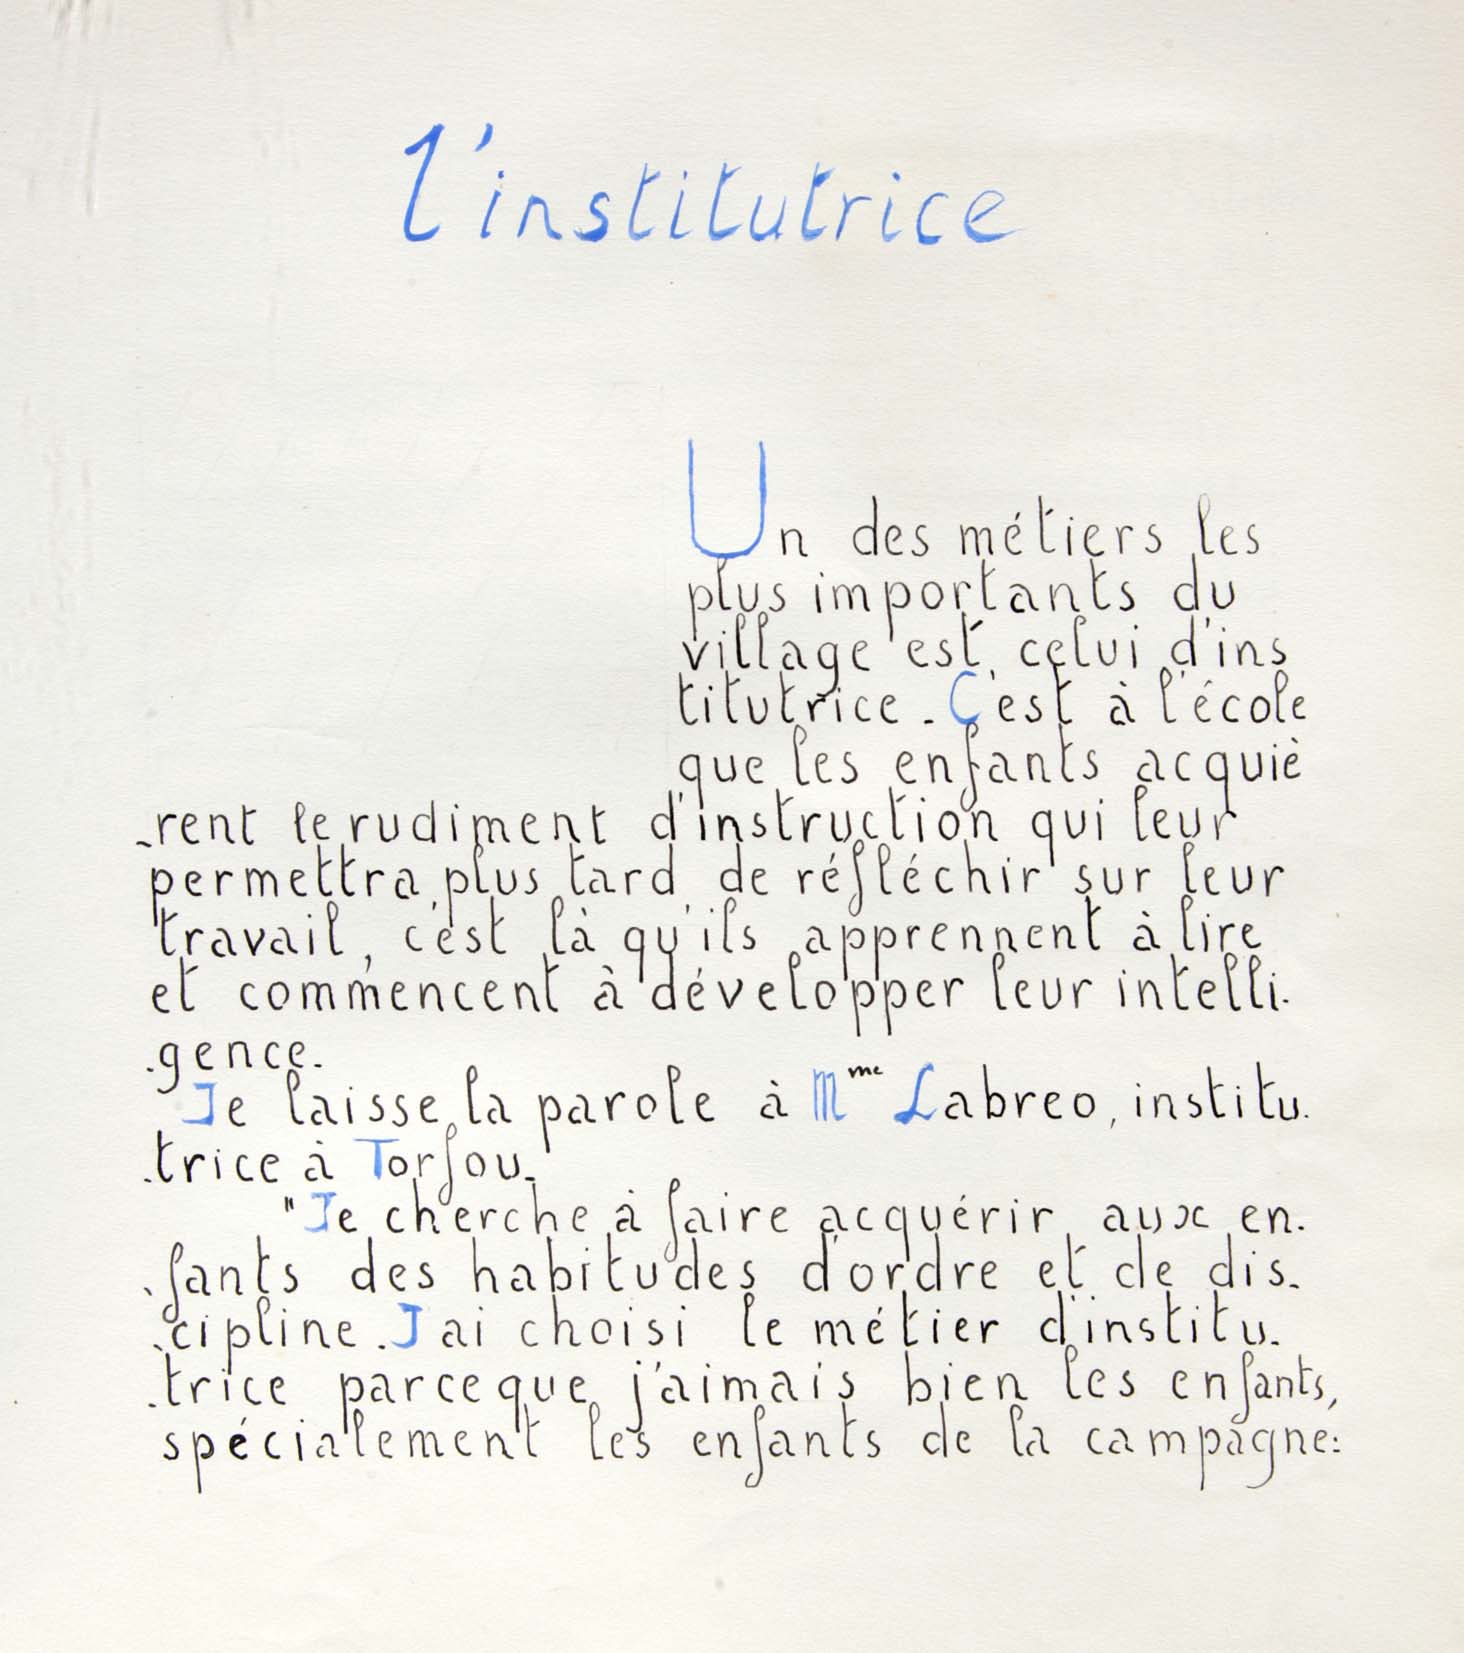 l'institutrice
Un des métiers les
plus importants du
village est celui d'ins
titutrice. C'est à l'école
que les enfants acquiè
-rent le rudiment d'instruction qui leur
permettra plus tard de réfléchir sur leur
travail, c'est là qu'ils apprennent à lire
et commencent à développer leur intelli-
-gence.
Je laisse la parole à Mme Labreo, institu-
-trice à Torfou.
"Je cherche à faire acquérir aux en-
-fants des habitudes d'ordre et de dis-
-cipline. J'ai choisi le métier d'institu-
-trice parceque j'aimais bien les enfants,
spécialement les enfants de la campagne: